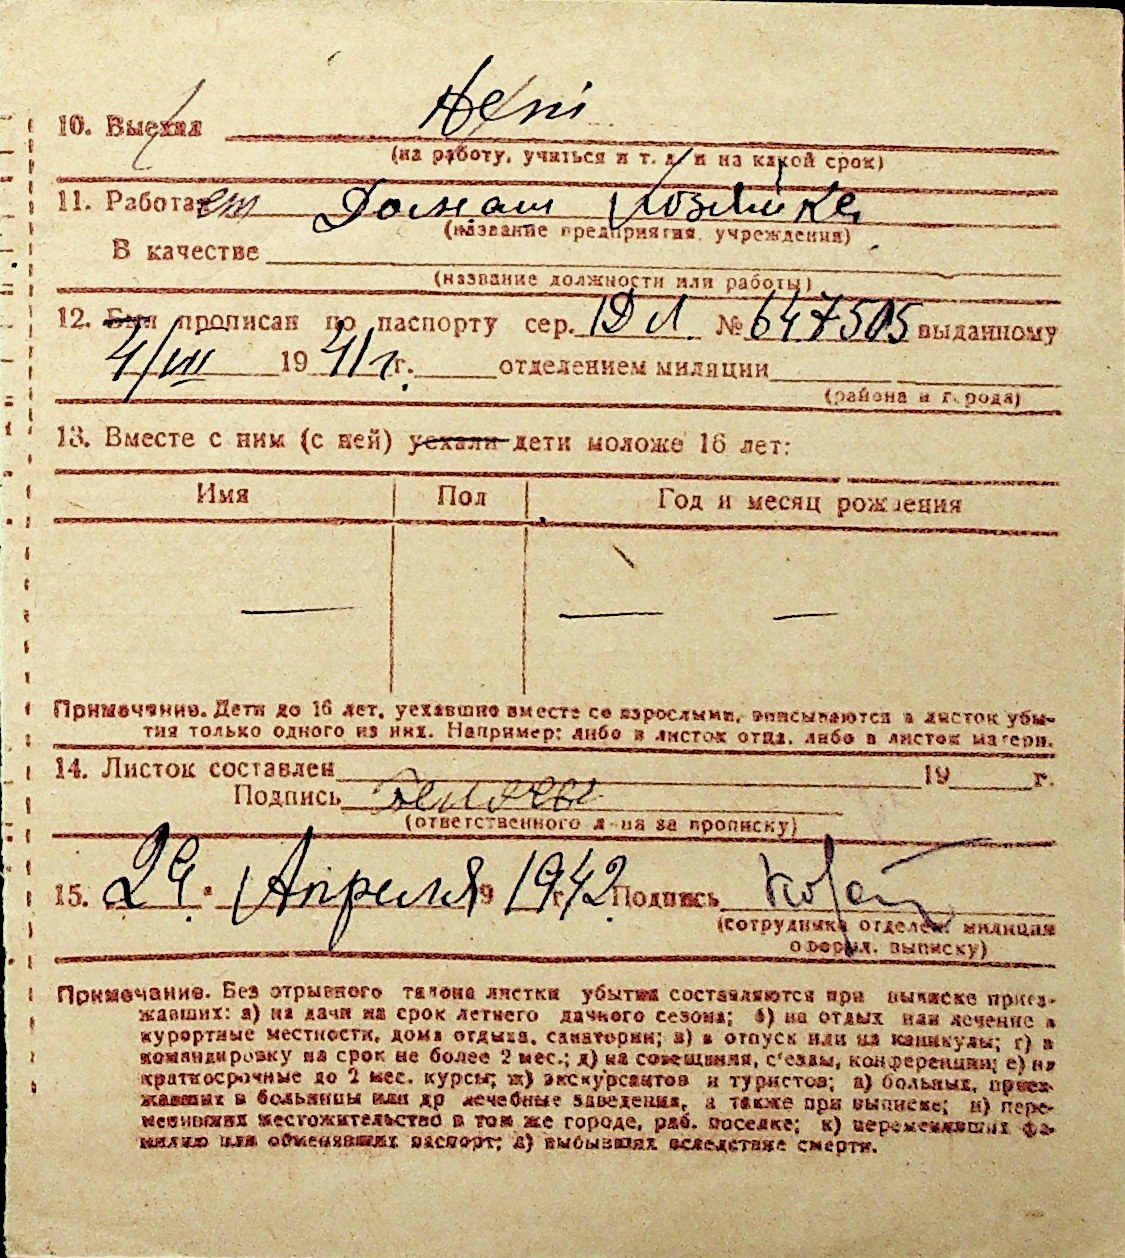 10. Выехал Нет
(на работу, учиться и т. д. и на какой срок)
11. Работает Домаш Хозяйка
(название предприятия, учреждения)
В качестве
(название должности или работы)
12. Был прописан по паспорту сер. № 647505 выданному
4/VII 1941 г. отделением милиции
(района и города)
13. Вместе с ним (с ней) уехали дети моложе 16 лет:
Имя Пол Год и месяц рождения
— — —
Примечание. Дети до 16 лет, уехавшие вместе со взрослыми, вписываются в листок убы-
тия только одного из них. Например: либо в листок отца, либо в листок матери.
14. Листок составлен 19 г.
Подпись
(ответственного л-ца за прописку)
15. 29 Апреля 19 1942 г. Подпись
(сотрудника отделен. милиции
оформл. выписку)
Примечание. Без отрывного талона листки убытия составляются при выписке приез-
жавших: а) на дачи на срок летнего дачного сезона; б) на отдых или лечение в
курортные местности, дома отдыха, санатории; в) в отпуск или на каникулы; г) в
командировку на срок не более 2 мес.; д) на совещания, с'езды, конференции; е) на
краткосрочные до 2 мес. курсы; ж) экскурсантов и туристов; з) больных, приез-
жавших в больницы или др лечебные заведения, а также при выписке; и) пере-
менивших местожительство в том же городе, раб. поселке; к) переменивших фа-
милию или обменявших паспорт; л) выбывших вследствие смерти.